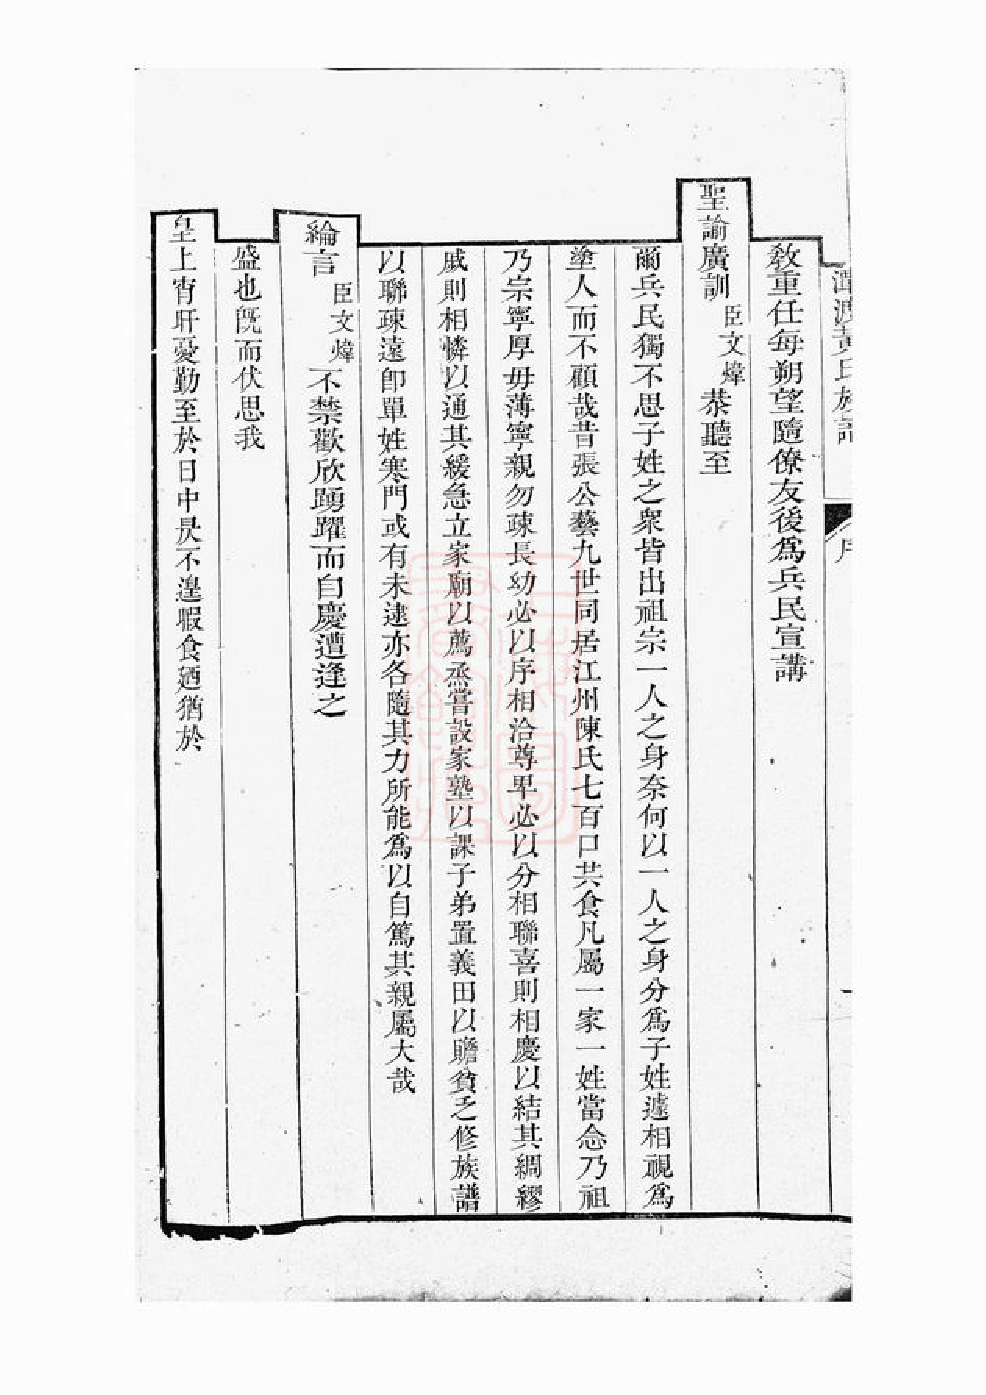 潭渡黃氏族譜 序
敎重任每朔望隨僚友後爲兵民宣講
聖諭廣訓臣文煒恭聽至
爾兵民獨不思子姓之衆皆出祖宗一人之身奈何以一人之身分爲子姓遽相視爲
塗人而不顧哉昔張公藝九世同居江州陳氏七百口共食凡屬一家一姓當念乃祖
乃宗寧厚毋薄寧親勿疎長幼必以序相洽尊卑必以分相聯喜則相慶以結其綢繆
戚則相憐以通其緩急立家廟以薦烝嘗設家塾以課子弟置義田以贍貧乏修族譜
以聯疎遠卽單姓寒門或有未逮亦各隨其力所能爲以自篤其親屬大哉
綸言臣文煒不禁歡欣踴躍而自慶遭逢之
盛也旣而伏思我
皇上宵旰憂勤至於日中昃不遑暇食廼猶於